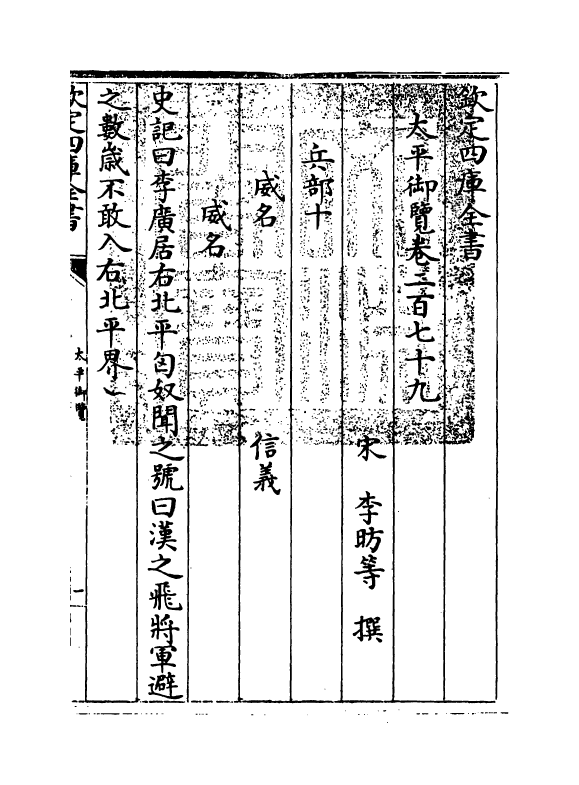 欽定四庫全書
太平御覽卷二百七十九
宋 李昉等 撰
兵部十
威名 信義
威名
史記曰李廣居右北平匈奴聞之號曰漢之飛將軍避
之數歲不敢入右北平界
欽定四庫全書
太平御覽
一